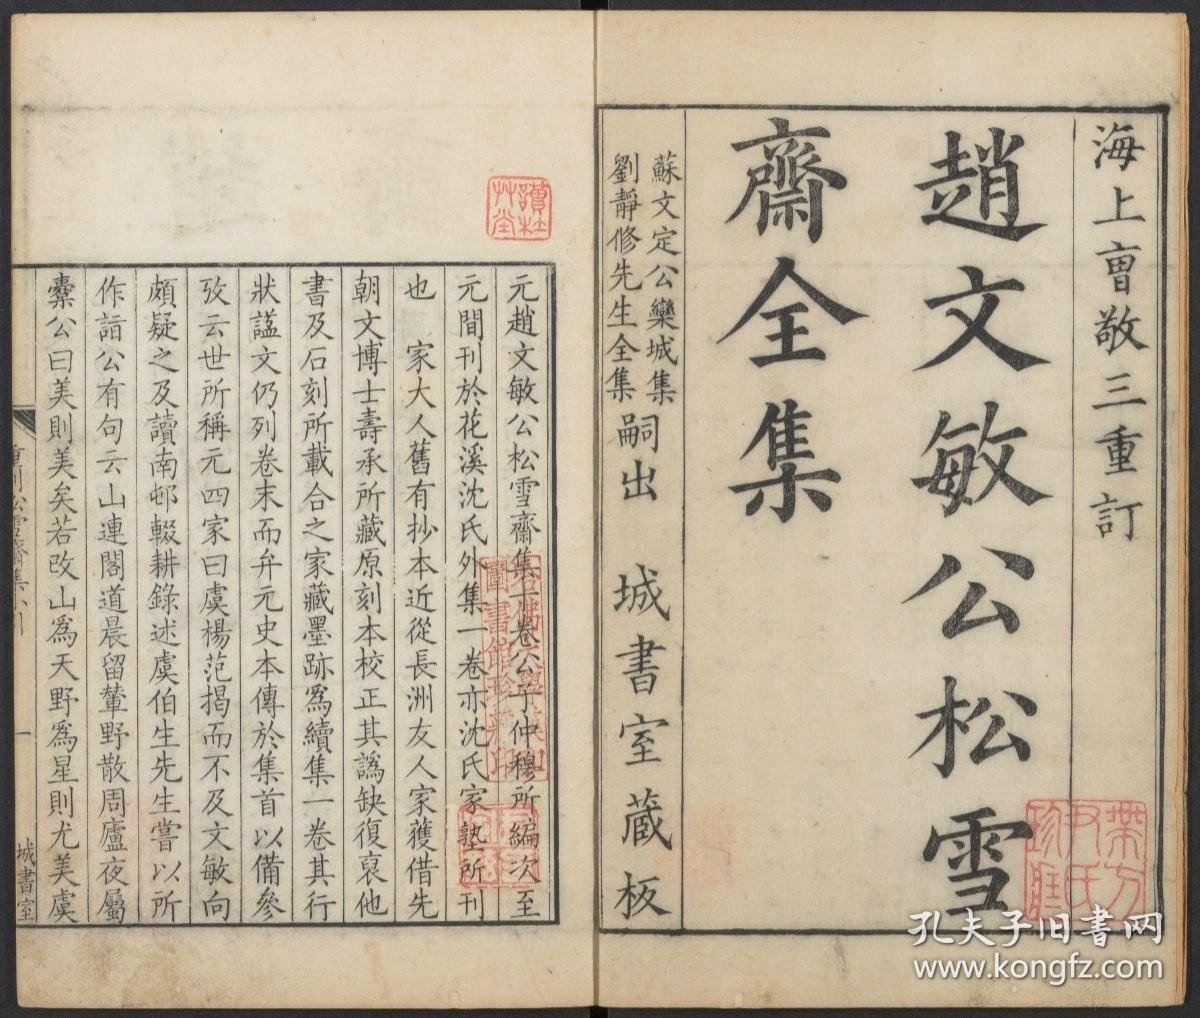 海上曺敬三重訂
趙文敏公松雪
齋全集
蘇文定公欒城集
劉靜修先生全集
嗣出 城書室藏板
讀杜艸堂
元趙文敏公松雪齋集十卷公子仲穆所編次至
元間刊於花溪沈氏外集一卷亦沈氏家塾所刊
也 家大人舊有抄本近從長洲友人家獲借先
朝文博士壽承所藏原刻本校正其譌缺復裒他
書及石刻所載合之家藏墨跡爲續集一卷其行
狀謚文仍列卷末而弁元史本傳於集首以備參
攷云世所稱元四家曰虞楊范揭而不及文敏向
頗疑之及讀南邨輟耕錄述虞伯生先生嘗以所
作詣公有句云山連閣道晨留輦野散周廬夜屬
櫜公曰美則美矣若改山爲天野爲星則尤美虞
重刊松雪齋集小引
一
城書室
孔夫子旧书网
www.kongfz.com